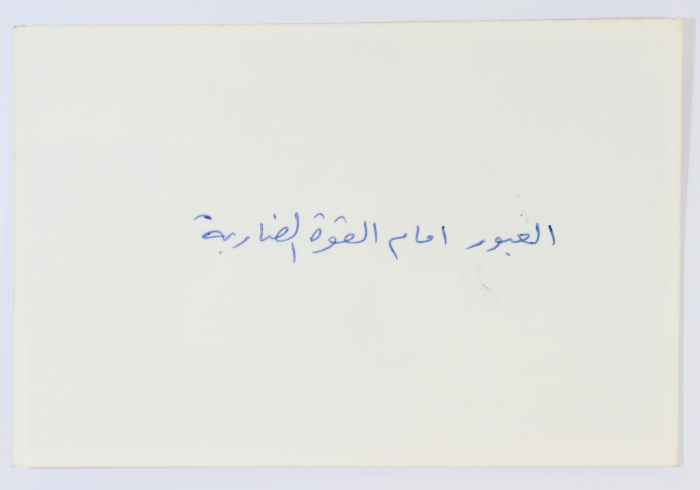 العبور امام القوة الضاربة